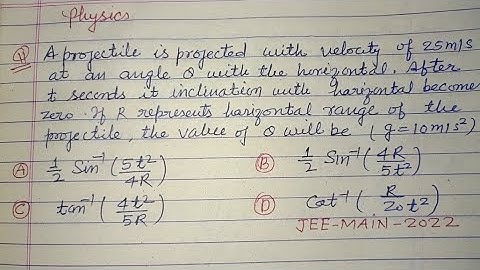 Physics
Q A projectile is projected with velocity of 25m/s
at an angle θ with the horizontal. After
t seconds it inclination with harizontal becomes
zero. If R represents harizontal range of the
projectile, the value of θ will be (g=10m/s²)
A 1/2 Sin⁻¹(5t²/4R) B 1/2 Sin⁻¹(4R/5t²)
C tan⁻¹(4t²/5R) D Cot⁻¹(R/20t²)
JEE-MAIN-2022